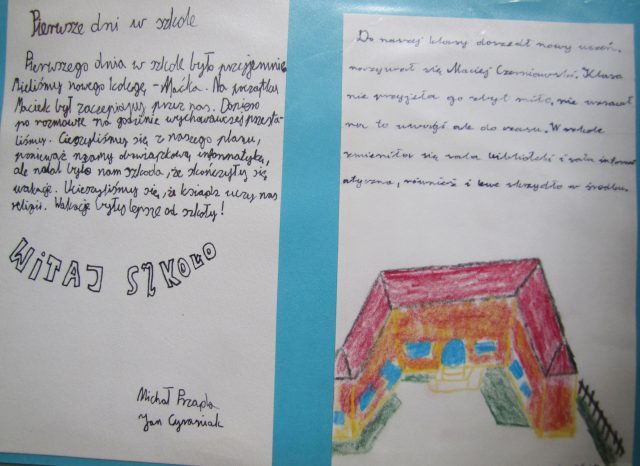 Pierwsze dni w szkole
Pierwszego dnia w szkole było przyjemnie.
Mieliśmy nowego kolegę - Maćka. Na początku
Maciek był zaczepiany przez nas. Dopiero
po rozmowie na godzinie wychowawczej przesta-
liśmy. Cieszyliśmy się z naszego planu,
ponieważ mamy obowiązkową informatykę,
ale nadal było nam szkoda, że skończyły się
wakacje. Ucieszyliśmy się, że ksiądz uczy nas
religii. Wakacje były lepsze od szkoły!
WITAJ SZKOŁO
Michał
Jan Cyraniak
Do naszej klasy doszedł nowy uczeń,
nazywał się Maciej Czerniawski. Klasa
nie przyjęła go zbyt miło, nie zwracał
na to uwagi ale do czasu. W szkole
zmieniła się sala biblioteki i sala inform
atyczna, również i lewe skrzydło w środku.